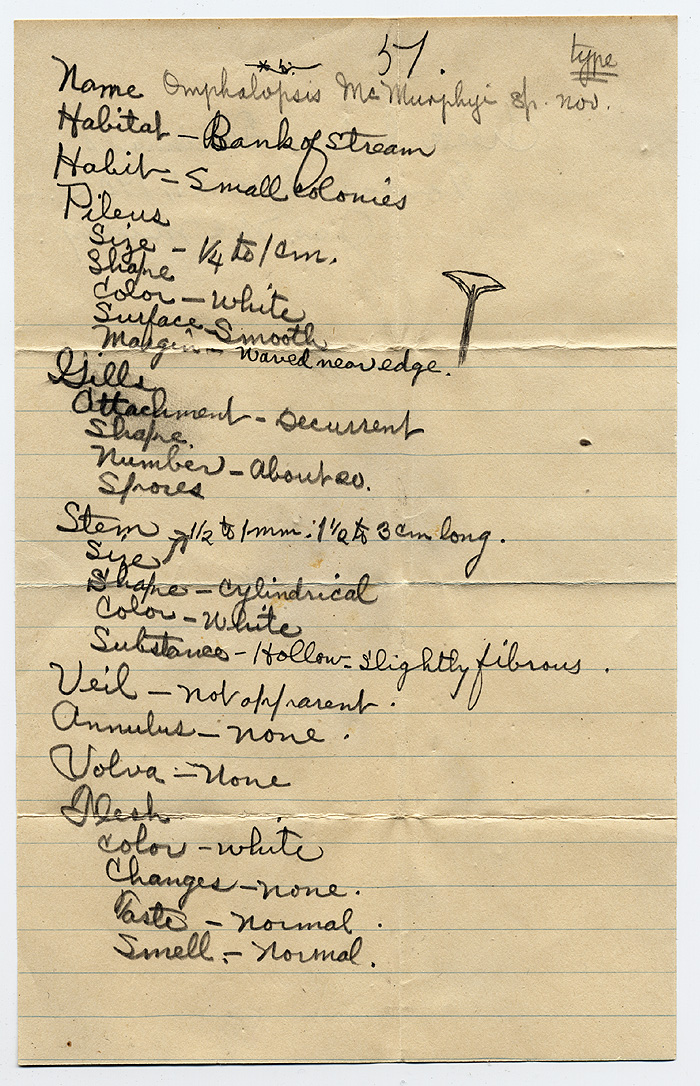 57.
type
Name Omphalopsis McMurphyi sp. nov.
Habitat - Bank of Stream
Habit - Small colonies
Pileus
Size - 1/4 to 1 cm.
Shape
Color - White
Surface - Smooth
Margin - Waved near edge.
Gills
Attachment - Decurrent
Shape.
Number - About 20.
Spores
Stem 1/2 to 1 mm : 1 1/2 to 3 cm long.
Size
Shape - Cylindrical
Color - White
Substance - Hollow - slightly fibrous.
Veil - not apparent.
Annulus - none.
Volva - None
Flesh
Color - white
Changes - none.
Taste - Normal.
Smell - Normal.